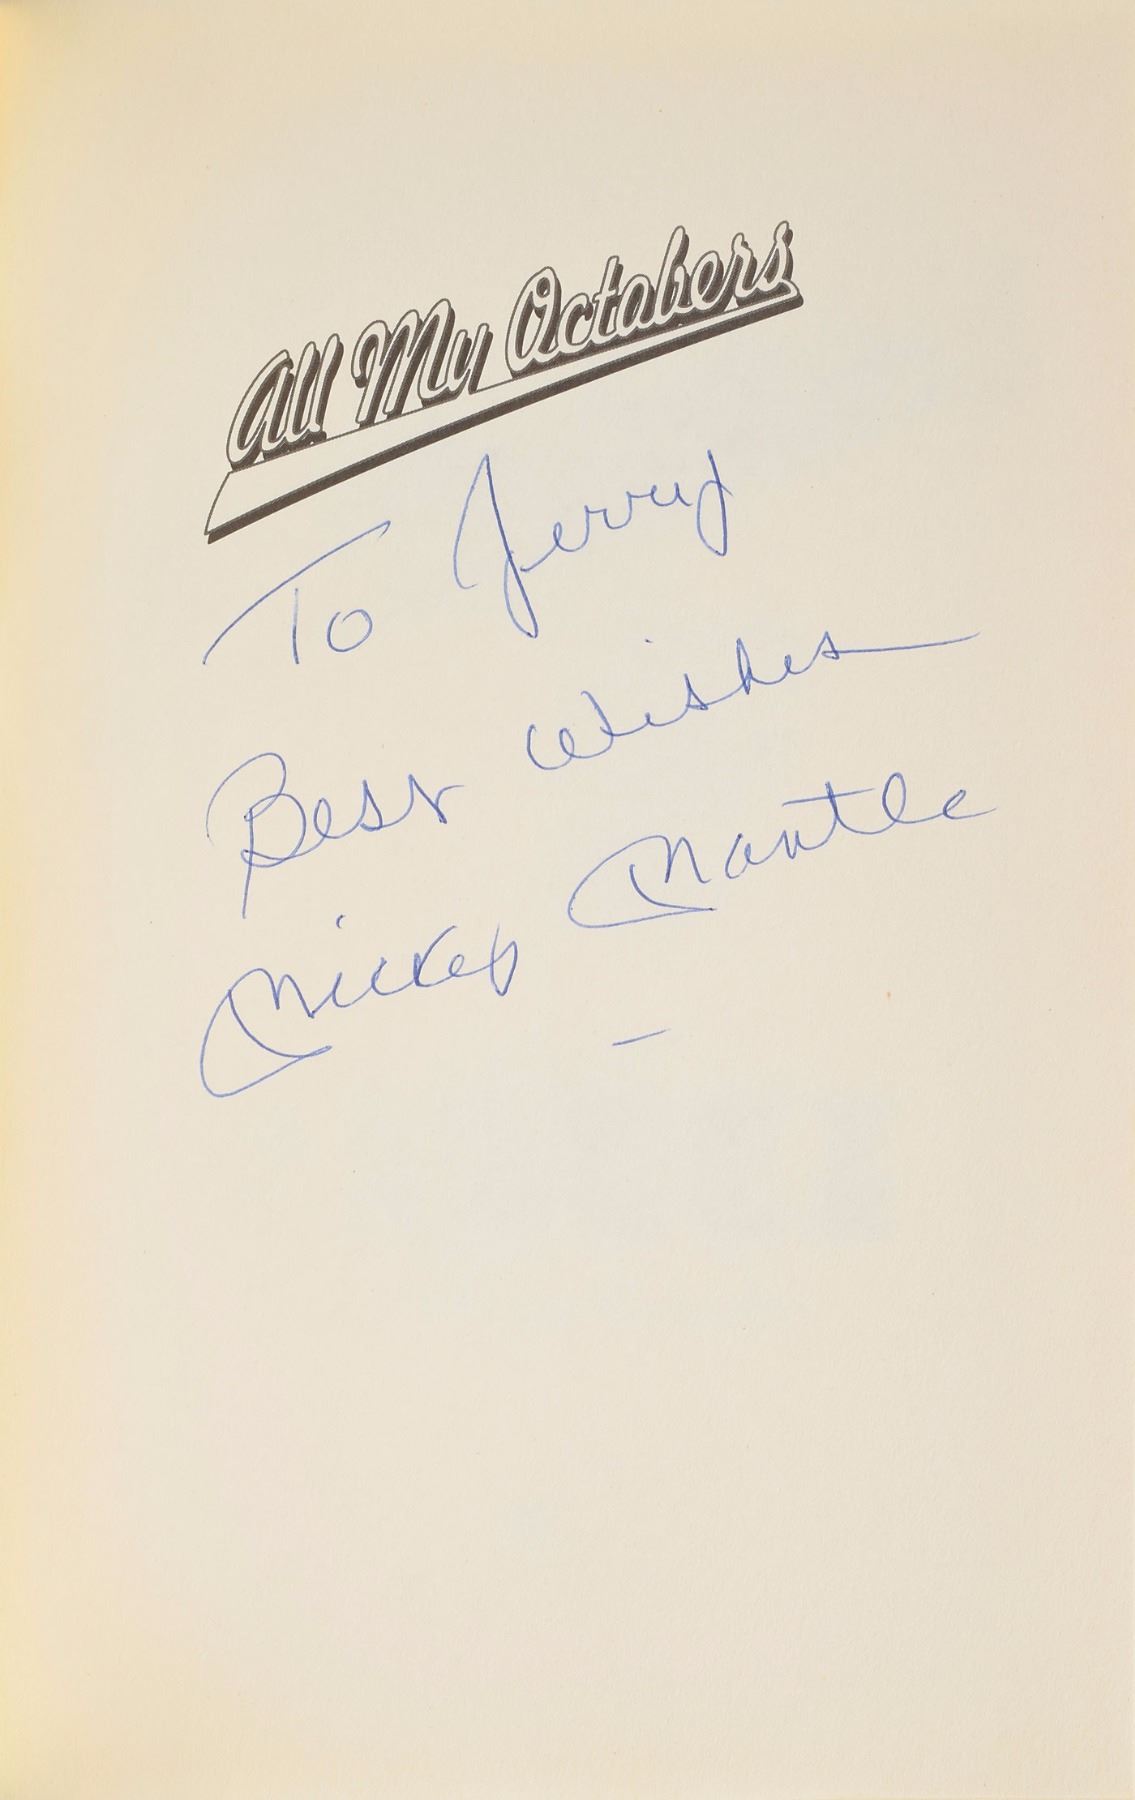 All My Octobers
To Jerry
Best Wishes
Mickey Mantle